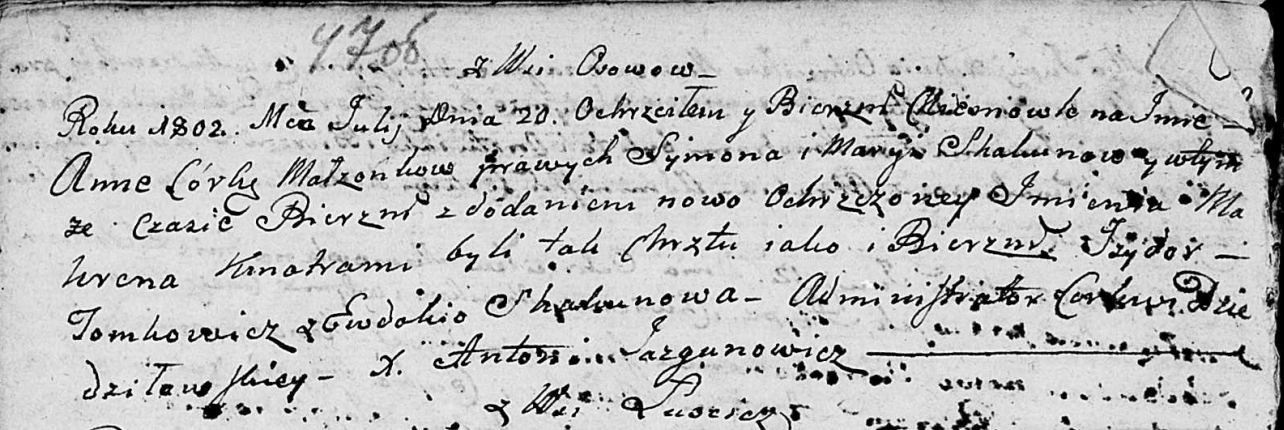 4706
z Wsi Osowow
Roku 1802. Mca Julij Dnia 20. Ochrzciłem y Bierzm na Imie
Anne Córkę Małzonkow prawych Symona i Maryi Skakunow y w tym
ze czasie Bierzm z dodaniem nowo Ochrzczoney Imienia Ma
krena Kmotrami byli tak Chrztu iako i Bierzm. Izydor
Tomkowicz z Ewdokio Skakunowa - Administrator Cerkwi Dzie
dziławskiey - X. Antoni Jazgunowicz
z Wsi